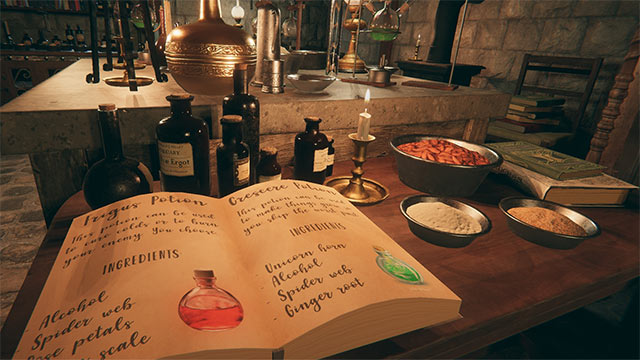 Ergot
Frigus Potion
This potion can be used
to cure colds or to burn
your enemy You choose.
INGREDIENTS
Alcohol
Spider web
petals
scale
Crescere Potion
This potion can be
to make things grow
you skip the
INGREDIENTS
- Unicorn horn
- Alcohol
- Spider web
- Ginger root